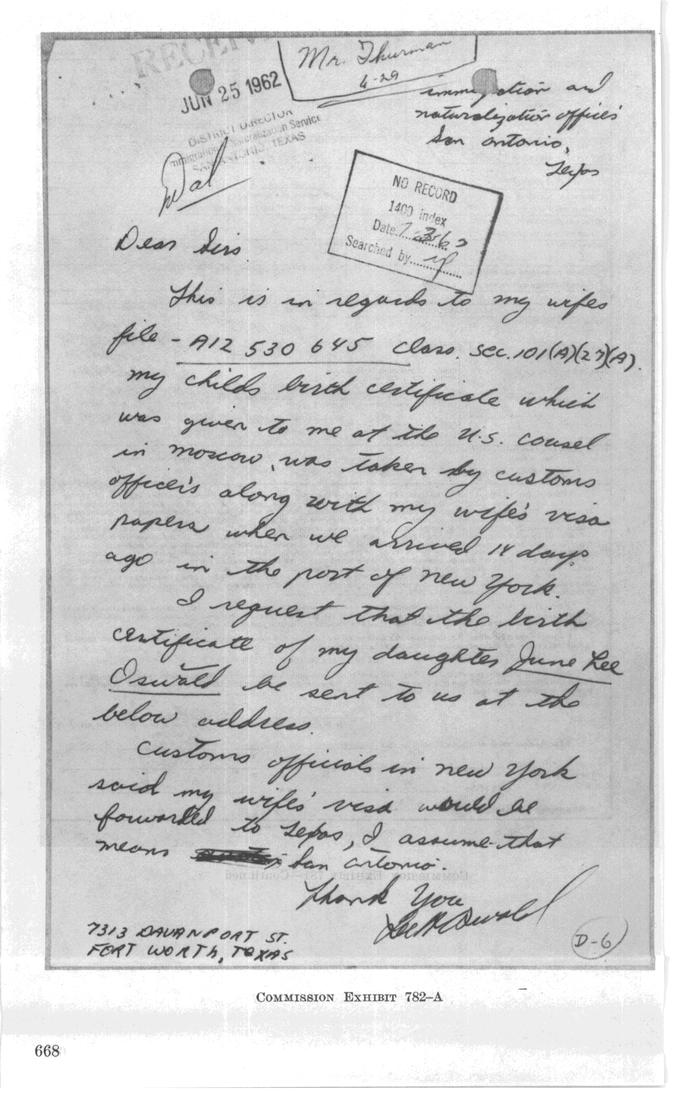 RECEIVED
JUN 25 1962
DISTRICT DIRECTOR
Immigration & Naturalization Service
SAN ANTONIO, TEXAS
Mr. Thurman
4-29
immigration and
naturalization offices
San antonio,
Texas
NO RECORD
1400 index
Date
Searched by
Dear Sirs
This is in regards to my wifes
file - A12 530 645 class. sec. 101(A)(27)(A).
my childs birth certificate which
was given to me at the U.S. cousel
in moscow, was taken by customs
officers along with my wife's visa
papers when we arrived 14 days
ago in the port of new York.
I request that the birth
certificate of my daughter June Lee
Oswald be sent to us at the
below address.
customs officials in new York
said my wife's visa would be
forwarded to Texas, I assume that
means san antonio.
Thank You
Lee H Oswald
7313 DAVANPORT ST.
FORT WORTH, TEXAS
D-6
COMMISSION EXHIBIT 782–A
668